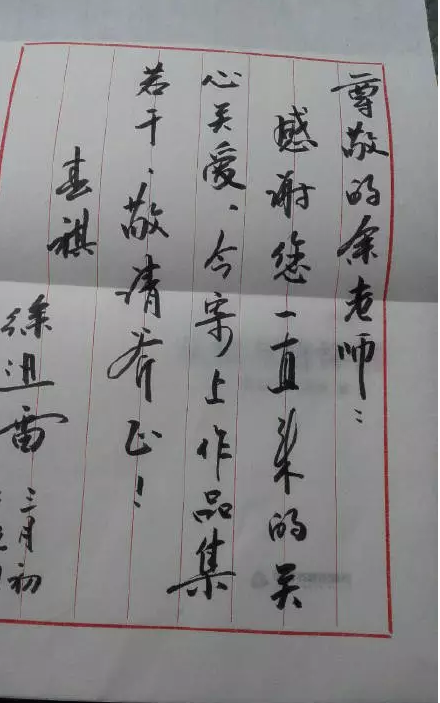 尊敬的余老师：
感谢您一直来的关
心关爱，今寄上作品集
若干，敬请斧正！
春祺
徐迅雷
三月初